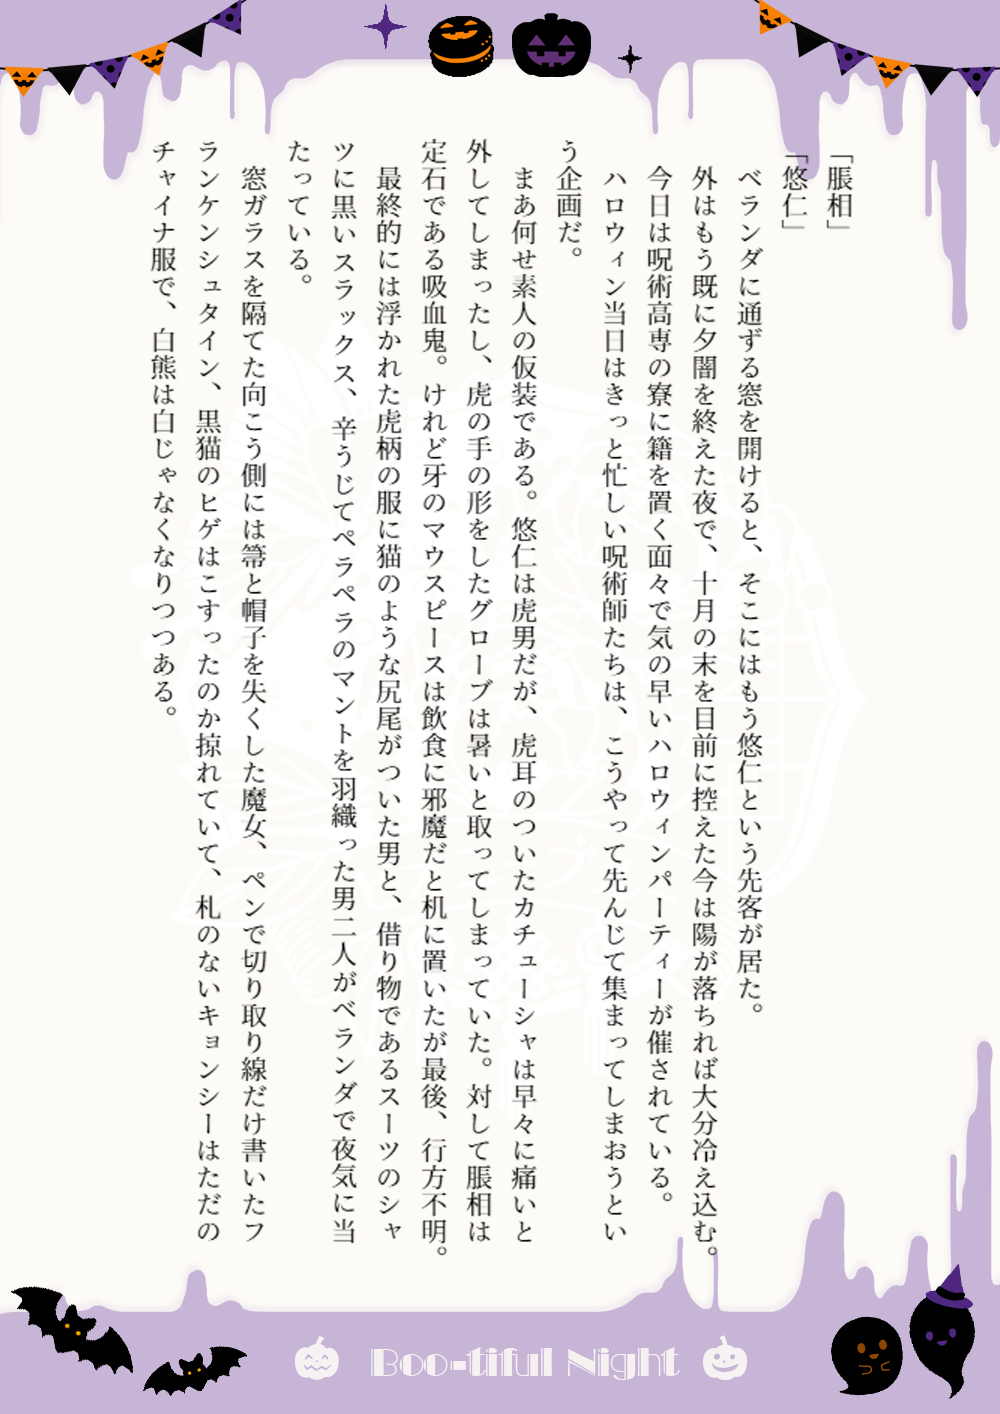 「脹相」
「悠仁」
　ベランダに通ずる窓を開けると、そこにはもう悠仁という先客が居た。
　外はもう既に夕闇を終えた夜で、十月の末を目前に控えた今は陽が落ちれば大分冷え込む。
　今日は呪術高専の寮に籍を置く面々で気の早いハロウィンパーティーが催されている。
　ハロウィン当日はきっと忙しい呪術師たちは、こうやって先んじて集まってしまおうとい
う企画だ。
　まあ何せ素人の仮装である。悠仁は虎男だが、虎耳のついたカチューシャは早々に痛いと
外してしまったし、虎の手の形をしたグローブは暑いと取ってしまっていた。対して脹相は
定石である吸血鬼。けれど牙のマウスピースは飲食に邪魔だと机に置いたが最後、行方不明。
　最終的には浮かれた虎柄の服に猫のような尻尾がついた男と、借り物であるスーツのシャ
ツに黒いスラックス、辛うじてペラペラのマントを羽織った男二人がベランダで夜気に当
たっている。
　窓ガラスを隔てた向こう側には箒と帽子を失くした魔女、ペンで切り取り線だけ書いたフ
ランケンシュタイン、黒猫のヒゲはこすったのか掠れていて、札のないキョンシーはただの
チャイナ服で、白熊は白じゃなくなりつつある。
Boo-tiful Night